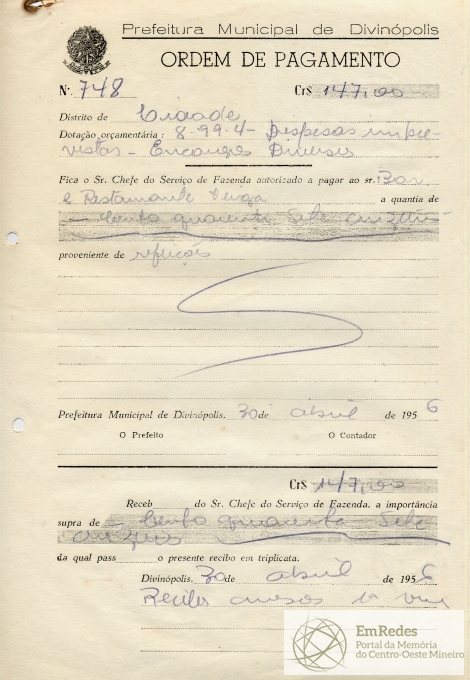 Prefeitura Municipal de Divinópolis
ORDEM DE PAGAMENTO
N.º 748 Cr$ 147,00
Distrito de Cidade
Dotação orçamentária : 8-99-4 - Despesas impre-
vistas - Encargos Diversos
Fica o Sr. Chefe do Serviço de Fazenda autorizado a pagar ao sr. Bar
e Restaurante a quantia de
- cento quarenta sete cruzeiros
proveniente de refeições
Prefeitura Municipal de Divinópolis, 30 de abril de 1956
O Prefeito O Contador
Cr$ 147,00
Receb do Sr. Chefe do Serviço de Fazenda, a importância
supra de - cento quarenta sete
cruzeiros
da qual pass o presente recibo em triplicata.
Divinópolis, 30 de abril de 1956
Recibo anexos 1a via
EmRedes
Portal da Memória
do Centro-Oeste Mineiro